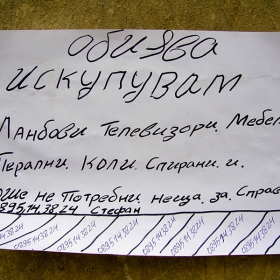 ОБИЯВА
ИСКУПУВАМ
Манбави Телевизори. Мебел
Перални. Коли. Спирани. и.
Още не Потребни Неща. за. Справ
0895.14.38.24 Стефан
0895.14.38.24
0895.14.38.24
0895.14.38.24
0895.14.38.24
0895.14.38.24
0895.14.38.24
0895.14.38.24